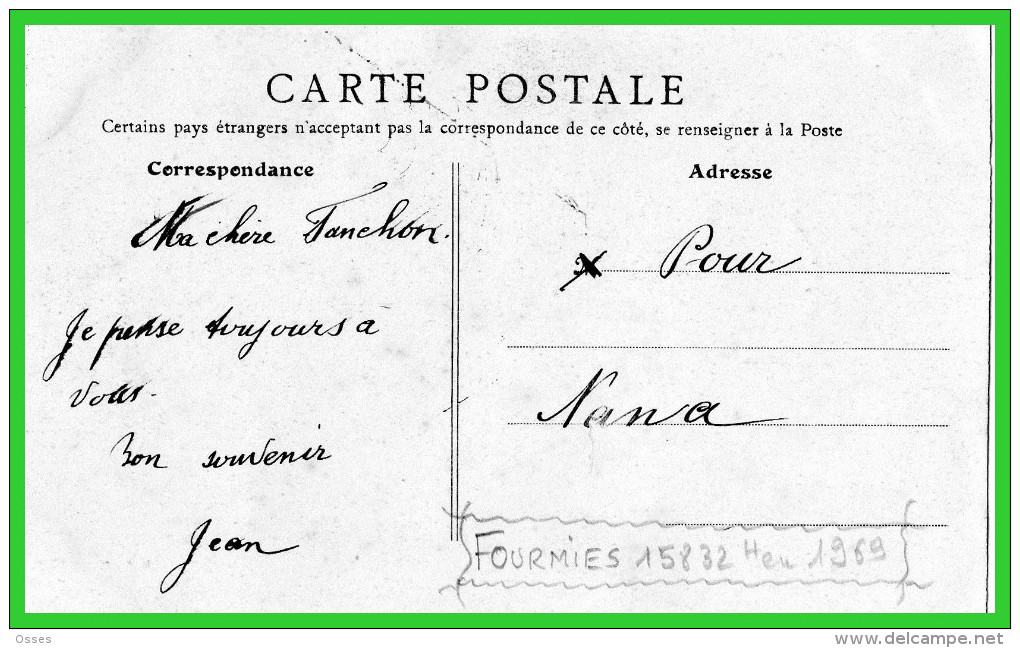 CARTE POSTALE
Certains pays étrangers n'acceptant pas la correspondance de ce côté, se renseigner à la Poste
Correspondance
Adresse
Ma chère Fanchon.
Je pense toujours a
vous.
Bon souvenir
Jean
Pour
Nana
FOURMIES 15832 H en 1969
Osses
www.delcampe.net